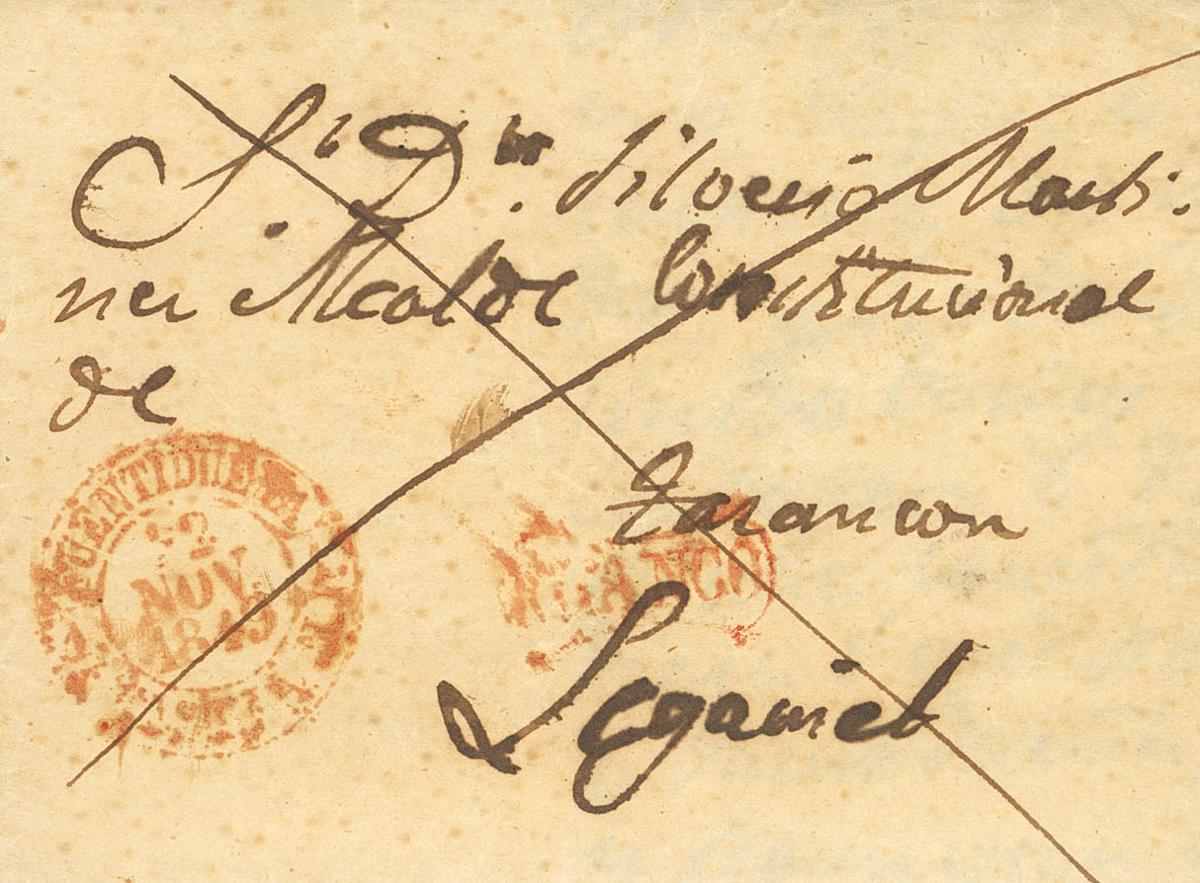 Sr. Dn. Silverio Marti-
nez Alcalde Constitucional
de
Tarancon
Leganiel
FUENTIDUEÑA
2
NOV.
1845
FRANCO